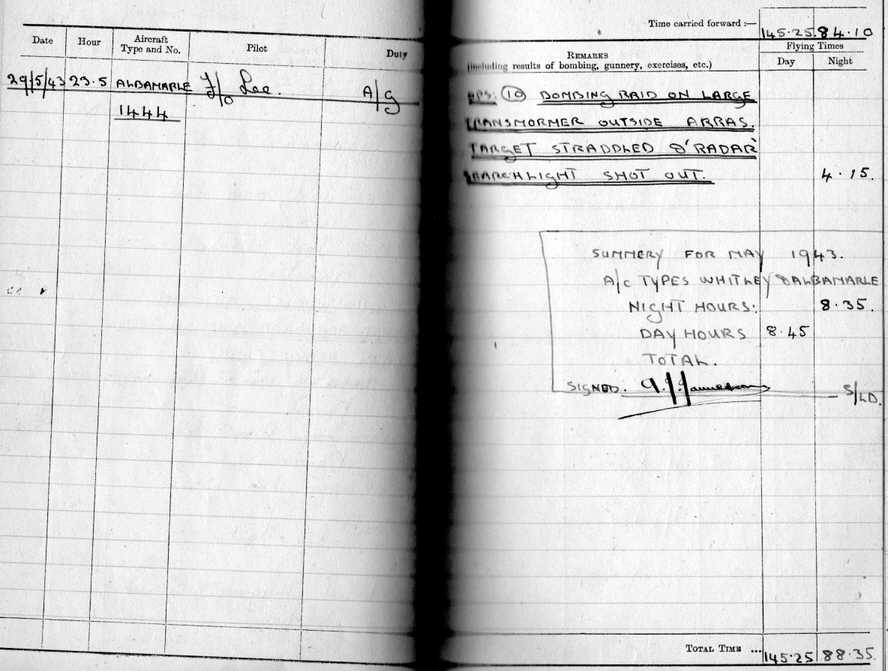 Date Hour Aircraft Type and No. Pilot Duty
29/5/43 23.5 ALBAMARLE F/O Lee. A/g
1444
Time carried forward :— 145·25 84·10
REMARKS
(including results of bombing, gunnery, exercises, etc.)
Flying Times
Day Night
OPS: 10 BOMBING RAID ON LARGE
TRANSMORMER OUTSIDE ARRAS.
TARGET STRADDLED & 'RADAR'
SEARCHLIGHT SHOT OUT. 4·15.
SUMMERY FOR MAY 1943.
A/C TYPES WHITLEY & ALBAMARLE
NIGHT HOURS: 8·35.
DAY HOURS 8·45
TOTAL.
SIGNED. S/LD.
TOTAL TIME ... 145·25 88·35.